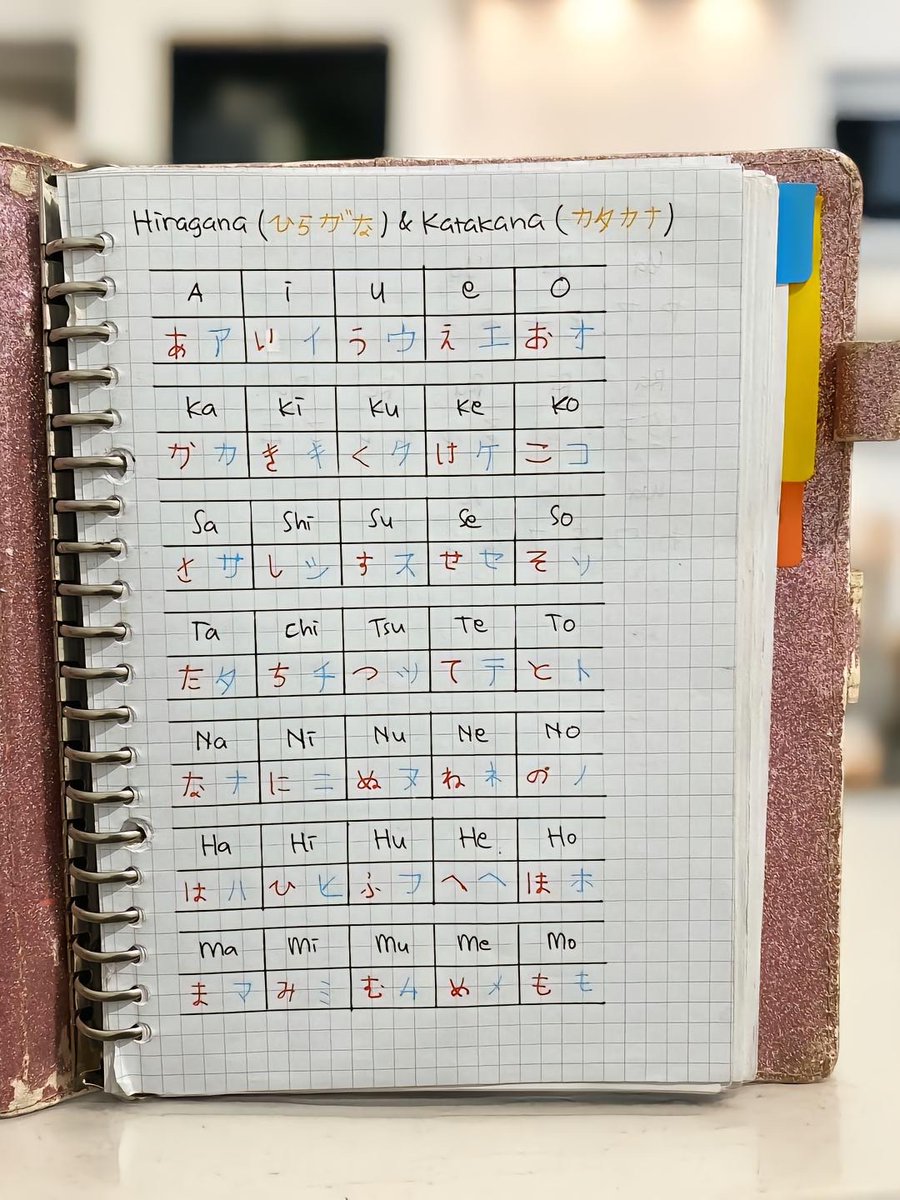 Hiragana (ひらがな) & Katakana (カタカナ)
A i u e O
あ ア い イ う ウ え エ お オ
Ka Ki Ku Ke Ko
か カ き キ く ク け ケ こ コ
Sa Shi Su Se So
さ サ し シ す ス せ セ そ ソ
Ta Chi Tsu Te To
た タ ち チ つ ツ て テ と ト
Na Ni Nu Ne No
な ナ に ニ ぬ ヌ ね ネ の ノ
Ha Hi Hu He Ho
は ハ ひ ヒ ふ フ へ ヘ ほ ホ
Ma Mi Mu Me Mo
ま マ み ミ む ム め メ も モ